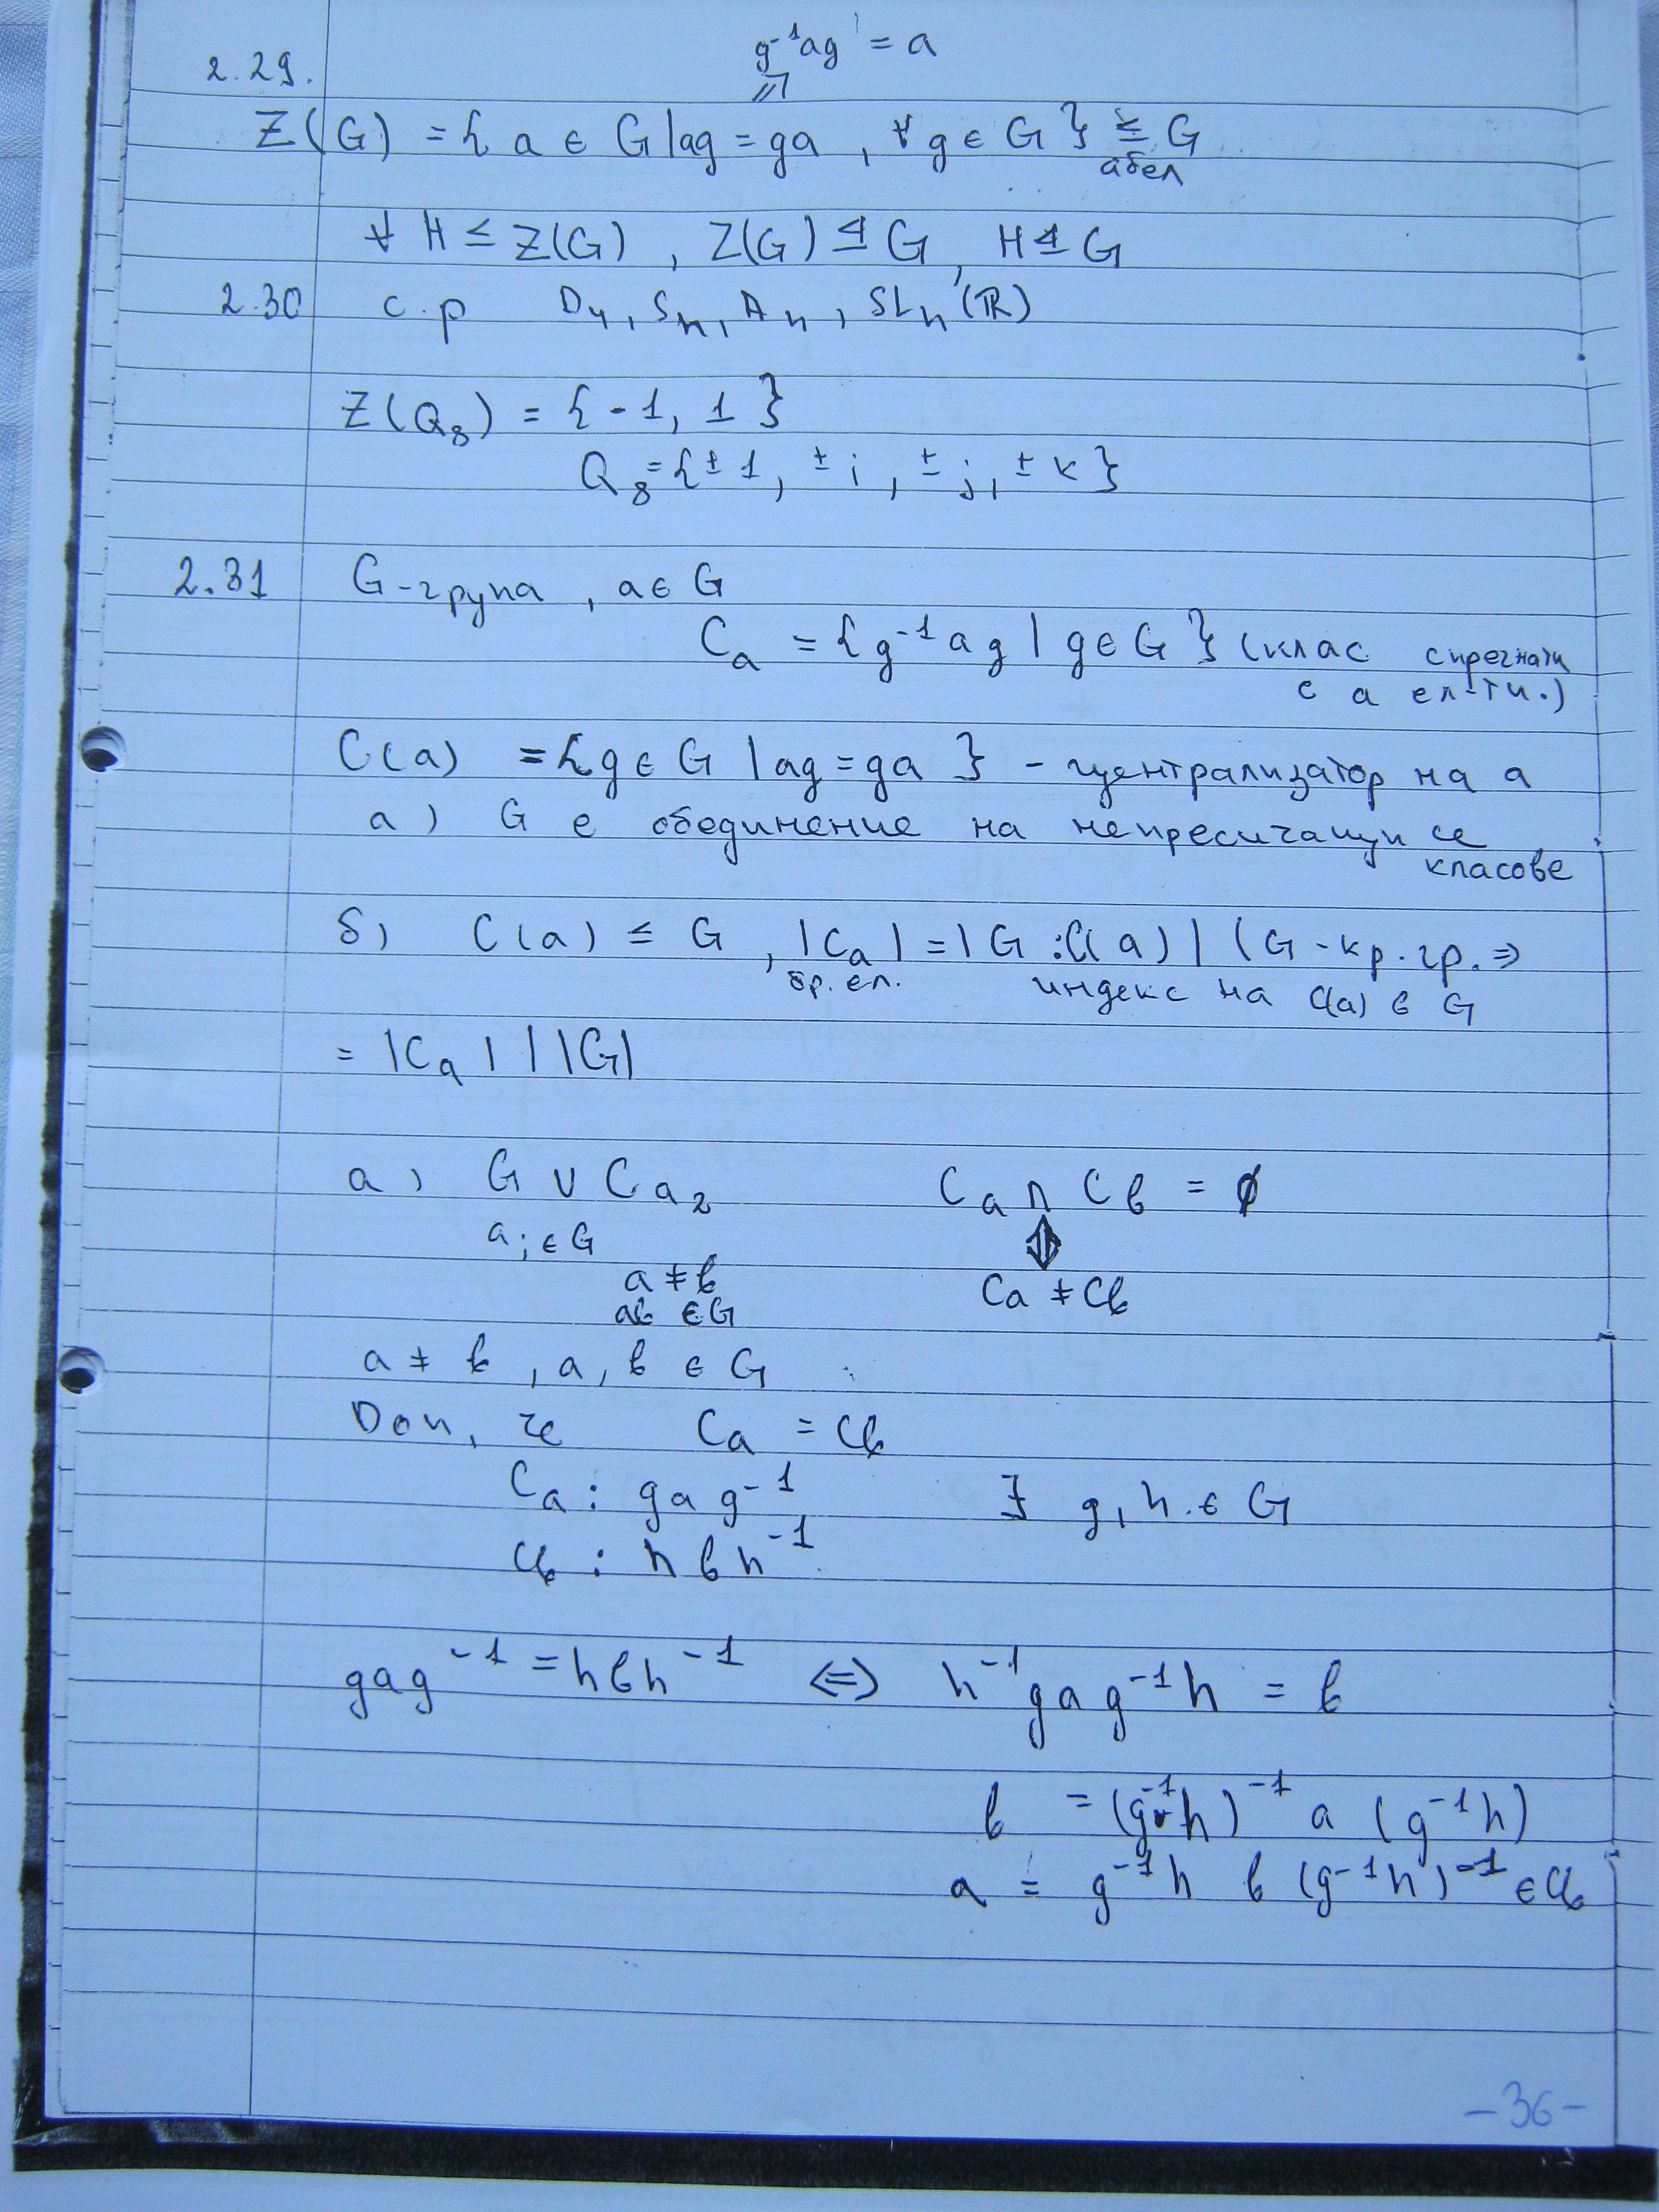 g⁻¹ag = a
2.29.
Z(G) = { a ∈ G | ag = ga , ∀ g ∈ G } ≤ G
абел
∀ H ≤ Z(G) , Z(G) ⊴ G , H ⊴ G
2.30 с.р D₄, Sₙ, Aₙ, SLₙ(ℝ)
Z(Q₈) = { -1, 1 }
Q₈ = { ± 1, ± i, ± j, ± k }
2.31 G - група , a ∈ G
Cₐ = { g⁻¹ag | g ∈ G } (клас спрегнати
с a ел-ти.)
C(a) = { g ∈ G | ag = ga } - централизатор на a
а) G е обединение на непресичащи се
класове
б) C(a) ≤ G , |Cₐ| = |G : C(a)| (G - кр. гр. ⇒
бр. ел. индекс на C(a) в G
= |Cₐ| | |G|
а) G ∪ Ca₂ Ca ∩ Cb = ∅
aᵢ ∈ G ⇕
a ≠ b Ca ≠ Cb
ab ∈ G
a ≠ b , a, b ∈ G
Доп, че Ca = Cb
Ca : gag⁻¹ ∃ g, h ∈ G
Cb : hbh⁻¹
gag⁻¹ = hbh⁻¹ ⇔ h⁻¹gag⁻¹h = b
b = (g⁻¹h)⁻¹ a (g⁻¹h)
a = g⁻¹h b (g⁻¹h)⁻¹ ∈ Cb
-36-